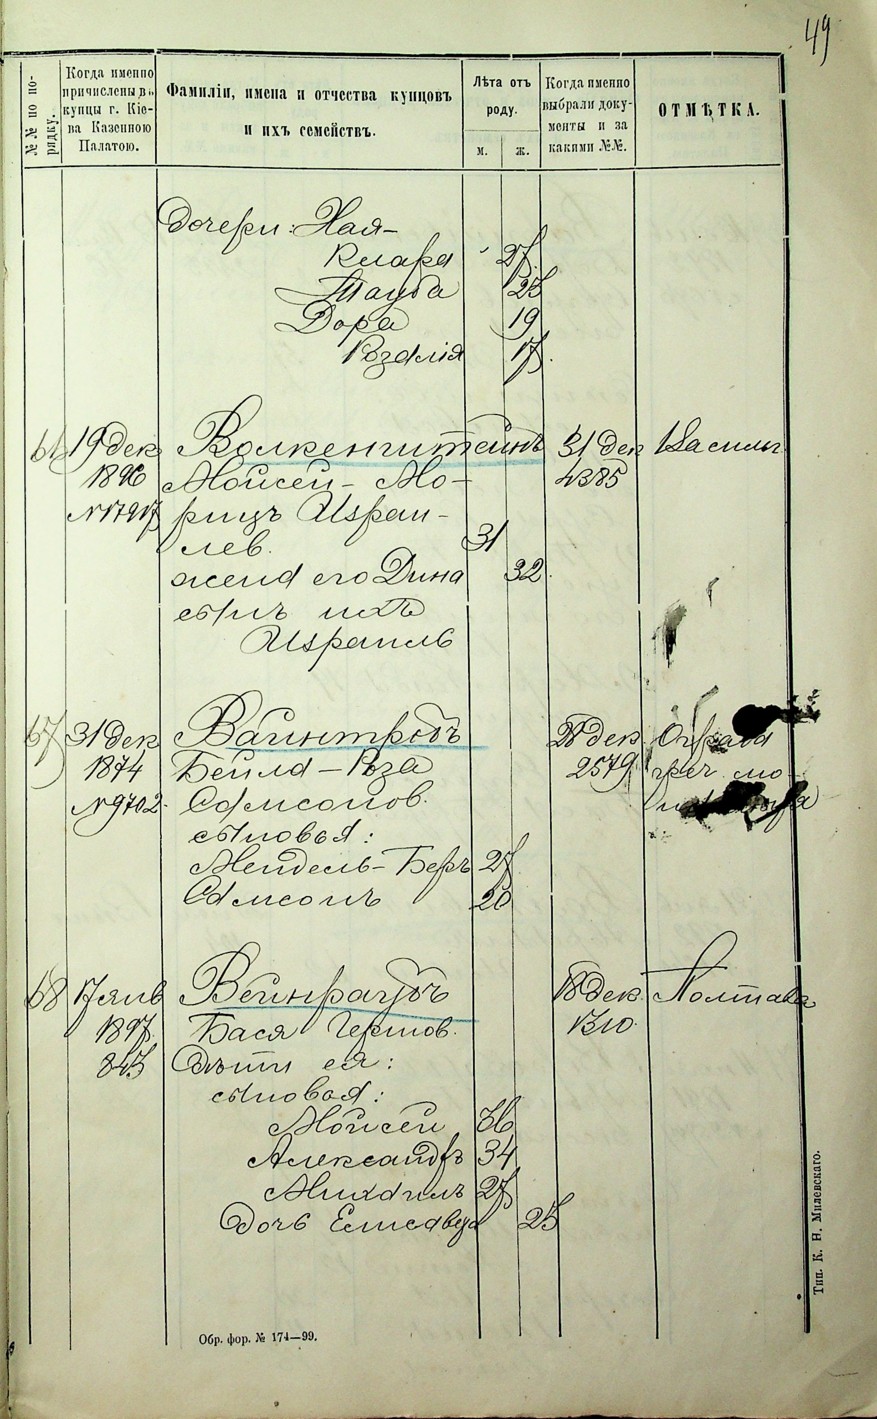 49
№№ по по-
рядку.
Когда именно
причислены въ
купцы г. Кіе-
ва Казенною
Палатою.
Фамиліи, имена и отчества купцовъ
и ихъ семействъ.
Лѣта отъ
роду.
м. ж.
Когда именно
выбрали доку-
менты и за
какими №№.
ОТМѢТКА.
Дочери: Хая-
Клара 27
Тауба 25
Дора 19
Розалія 17
66 19 дек Волкенштейнъ 31 дек Васильк.
1896 Мойсей-Мо- 4385
№17917 рицъ Израи-
лев. 31
жена его Дина 32
сынъ ихъ
Израиль
67 31 дек Вайнтробъ 28 дек
1874 Бейла-Роза 2579
№9702 Самсонов.
сыновья:
Мендель-Беръ 27
Самсонъ 20
68 17 янв Вейнраубъ 18 дек Полтава
1897 Бася Гершов. 1310
843 Дѣти ея:
сыновья:
Мойсей 36
Александръ 34
Михаилъ 27
Дочь Елисавета 25
Обр. фор. № 174—99.
Тип. К. Н. Милевскаго.